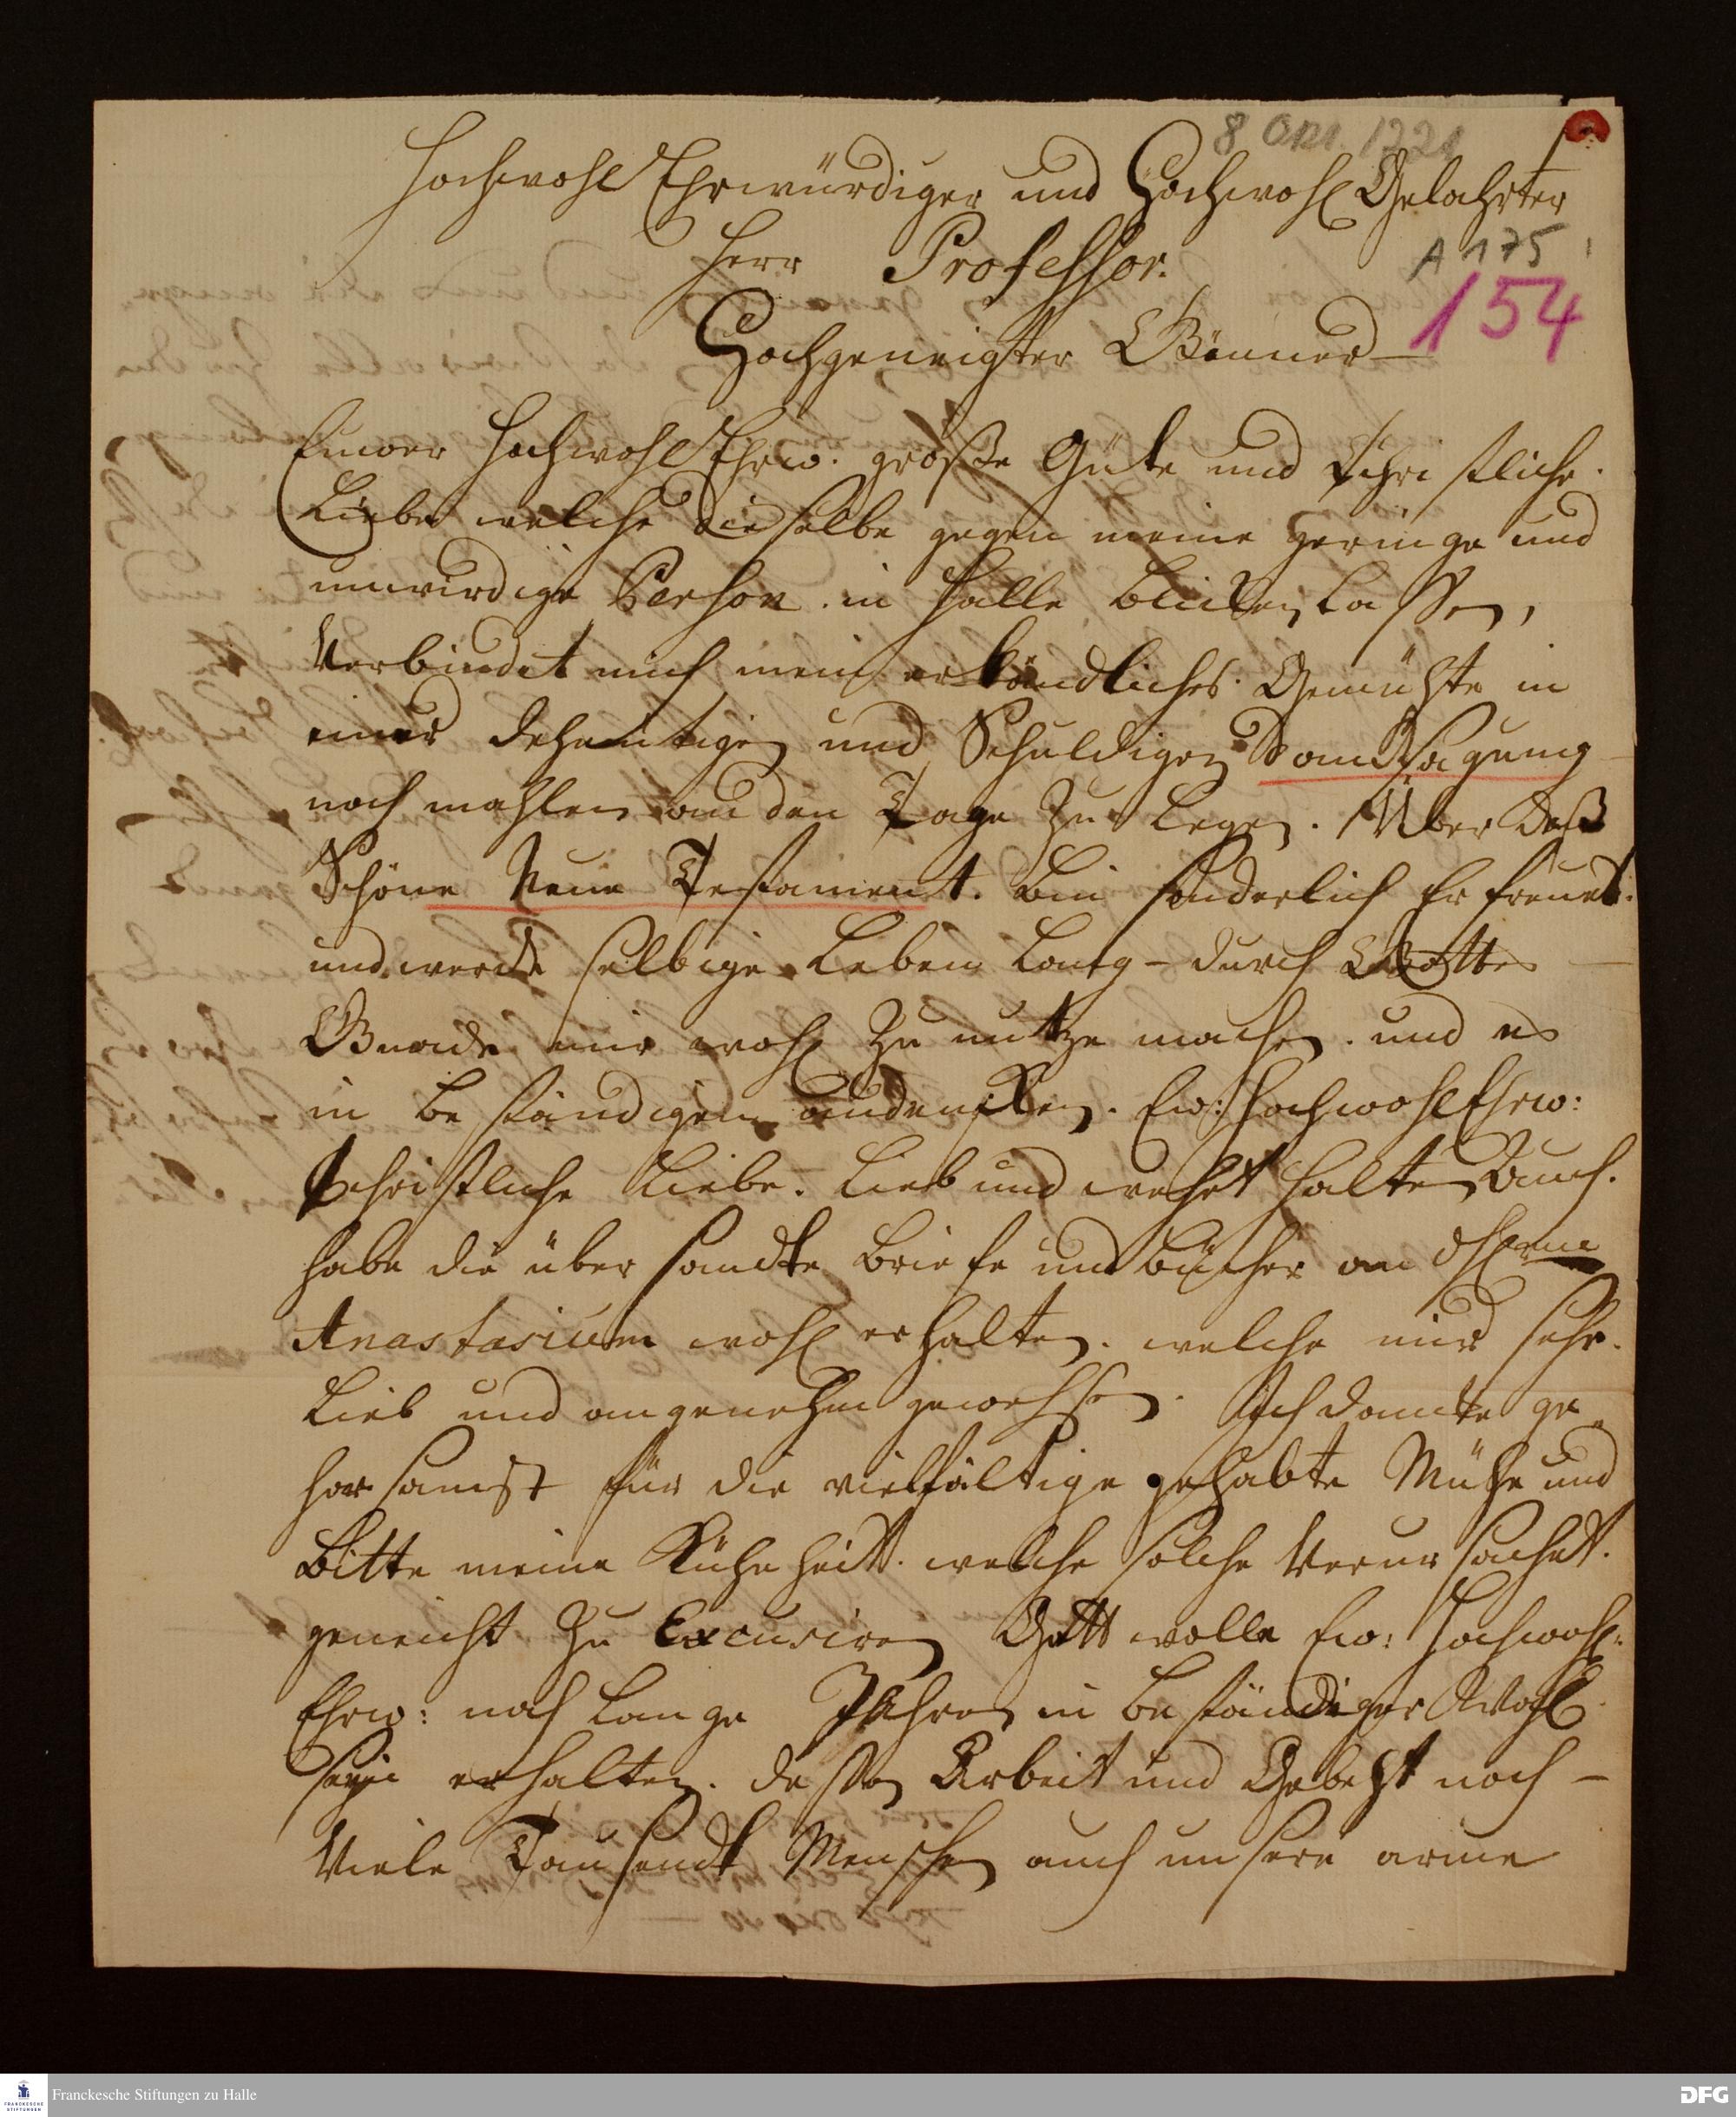 8 1721
Hochwohl Ehrwürdiger und Hochwohl Gelahrter
A 175
Herr Professor.
154
Hochgeneigter Gönner
Euwer Hochwohl Ehrw. große Güte und Christliche
Liebe welche dieselbe gegen meine geringe und
unwirdige Person in Halle blicken lassen,
Verbindet mich mein erkändliches Gemühte in
einer dehmütigen und Schuldigen Dancksagung
noch mahlen an den Tage zu legen. Über daß
Schöne Neue Testament. bin sonderlich Er freuet.
und werde selbige Leben lang - durch Gottes
Gnade mir wohl zu nutze machen. und es
in be ständigem andencken. Ew: HochwohlEhrw:
Christliche Liebe. Lieb und wehrt halten Auch.
habe die über sandte briefe und bücher an
Anastasium wohl erhalten. welche mir sehr.
Lieb und angenehm gewehsen. Ich dancke ge
horsamst für die vielfältige gehabte Mühe und
Bitte meine Kühnheit. welche solche Verur sachet.
geneicht zu Excusiren Gott wolle Ew: Hochwohl:
Ehrw: noch lange Jahren in be ständiger Wohl
seyn erhalten. dessen Arbeit und Gebeht noch -
Viele Tausendt Menschen auch unsere arme
Franckesche Stiftungen zu Halle
FRANCKESCHE STIFTUNGEN
DFG